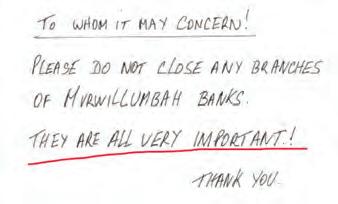 TO WHOM IT MAY CONCERN!
PLEASE DO NOT CLOSE ANY BRANCHES
OF MURWILLUMBAH BANKS.
THEY ARE ALL VERY IMPORTANT.!
THANK YOU.